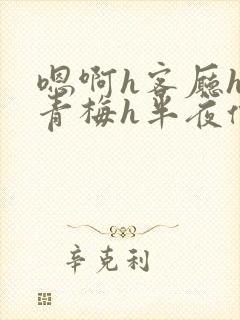 嗯啊h客厅h
青梅h半夜
辛克利